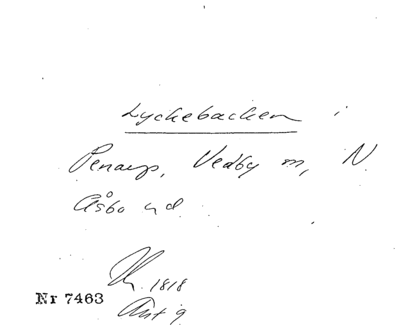 Lyckebacken i
Penarp, Vedby m, N.
Åsbo hd.
1818
Nr 7463
Akt 9